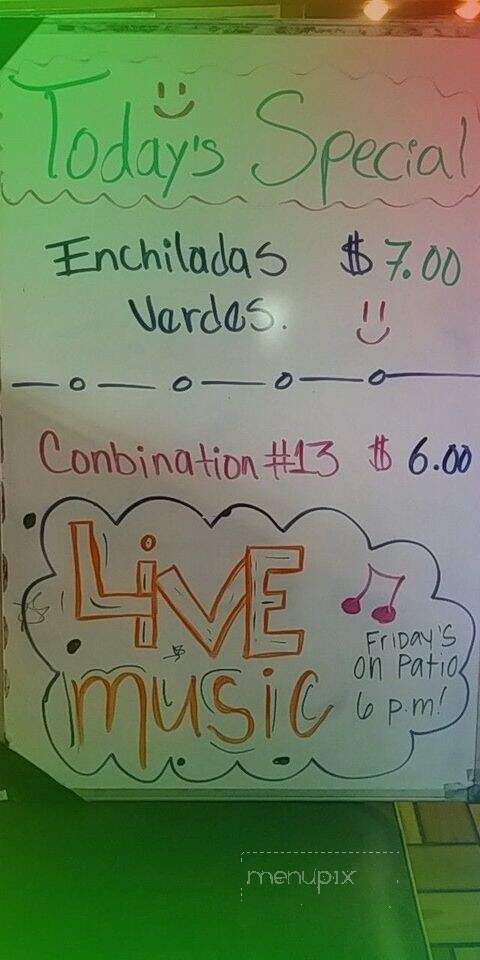 Today's Special
Enchiladas $7.00
Verdes.
Conbination #13 $6.00
LiVE
music
FriDay's
on Patio
6 p.m!
menupix